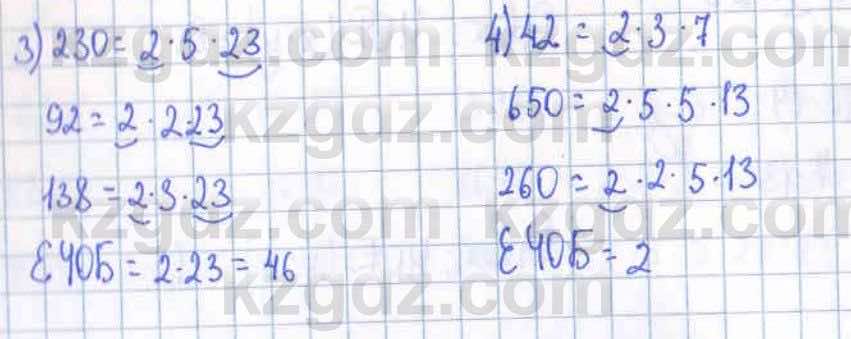 3) 230 = 2 · 5 · 23
92 = 2 · 2 · 23
138 = 2 · 3 · 23
ЕЧОБ = 2 · 23 = 46
4) 42 = 2 · 3 · 7
650 = 2 · 5 · 5 · 13
260 = 2 · 2 · 5 · 13
ЕЧОБ = 2
kzgdz.com
kzgdz.com
kzgdz.com
kzgdz.com
kzgdz.com